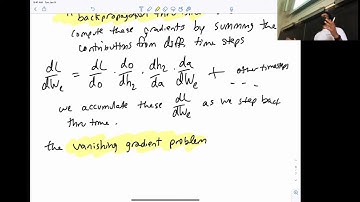 backpropagation thru time
compute these gradients by summing the
contributions from diff. time steps
dL/dWe = dL/do · do/dh2 · dh2/da · da/dWe + other timesteps ....
we accumulate these dL/dWe as we step back
thru time.
the vanishing gradient problem